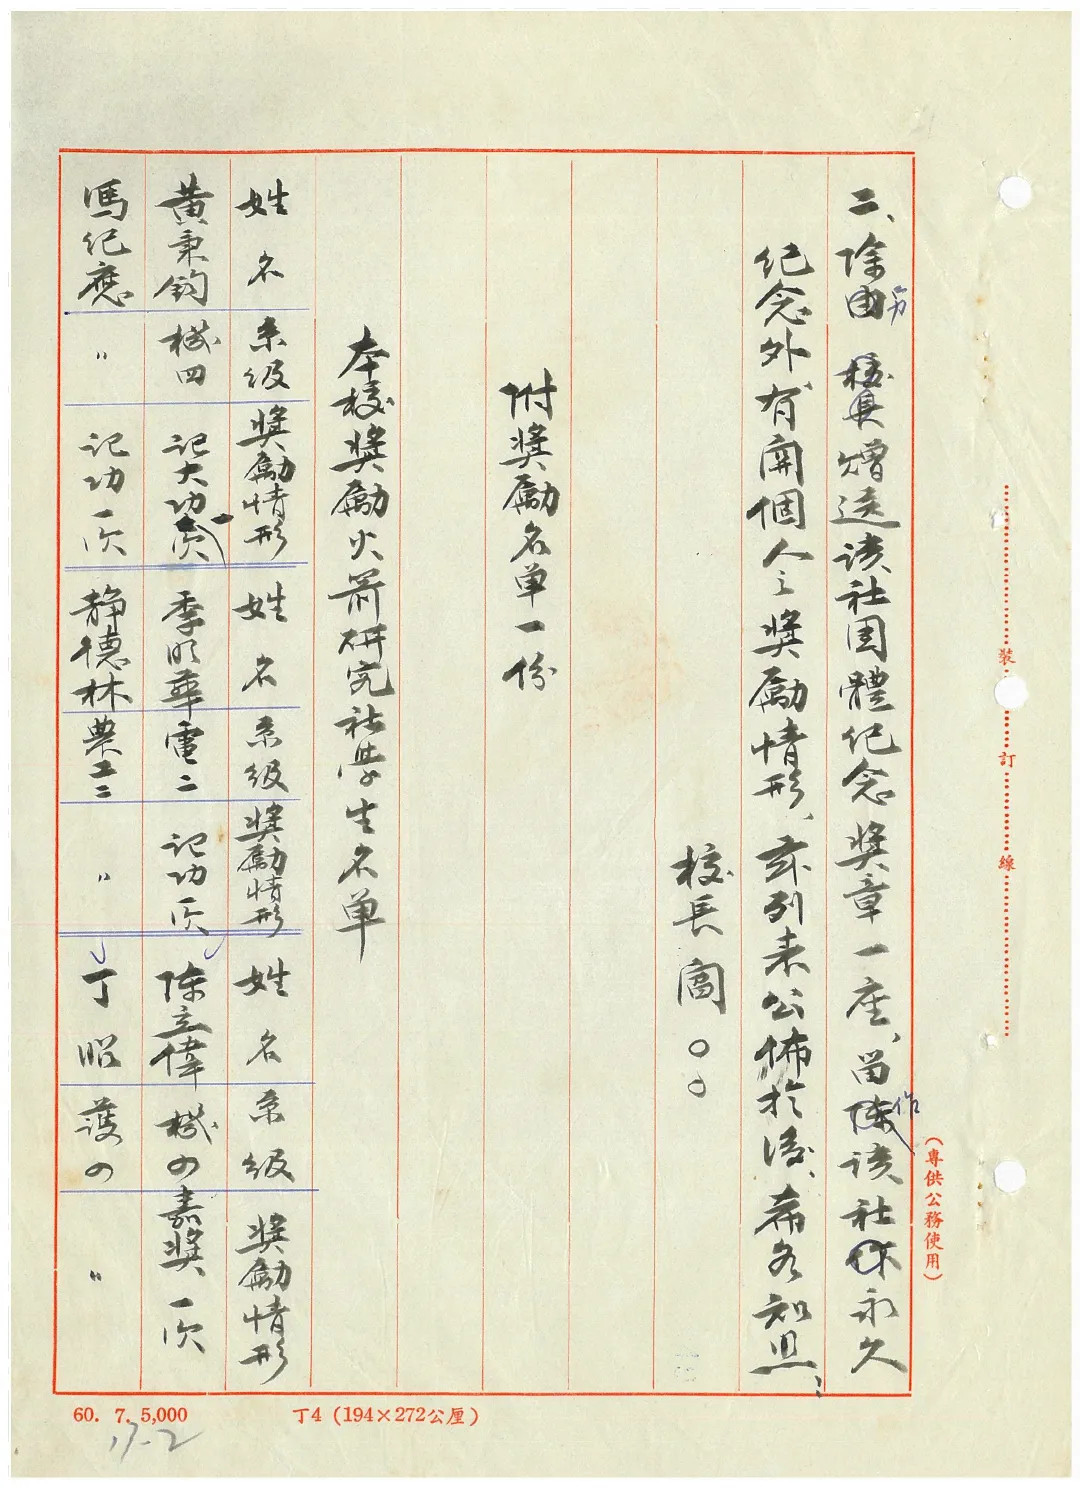 二、除由另校具贈送該社團體紀念獎章一座、留作該社永久
紀念外有關個人之獎勵情形、茲列表公佈於後、希各知照：
校長閻○○
附獎勵名單一份
本校獎勵火箭研究社學生名單
姓名 系級 獎勵情形 姓名 系級 獎勵情形 姓名 系級 獎勵情形
黃秉鈞 機四 記大功一次 季明華 電二 記功一次 陳立偉 機四 嘉獎一次
馮紀應 〃 記功一次 靜德林 農工二 〃 丁昭 護四 〃
裝訂線
（專供公務使用）
60. 7. 5,000 丁4（194×272公厘）
17-2